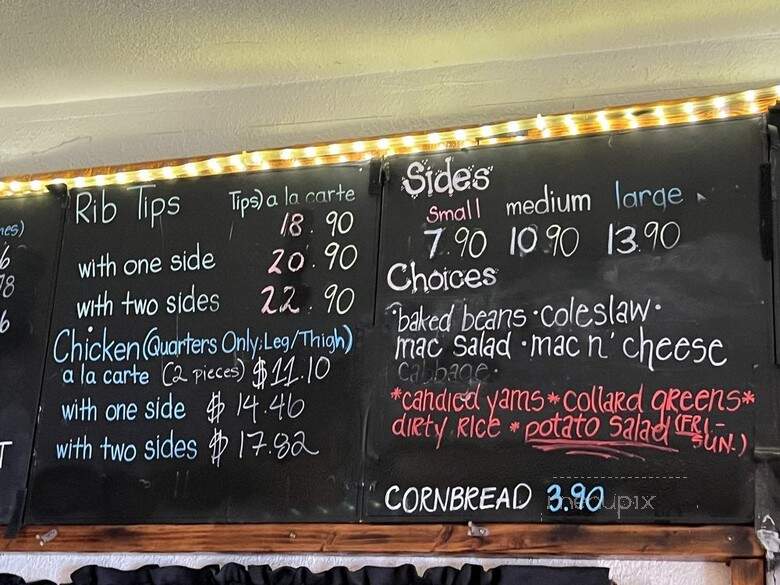 Rib Tips
Tips) a la carte
18.90
with one side 20.90
with two sides 22.90
Chicken (Quarters Only; Leg/Thigh)
a la carte (2 pieces) $11.10
with one side $14.46
with two sides $17.82
Sides
small medium large
7.90 10.90 13.90
Choices
·baked beans·coleslaw·
mac salad·mac n' cheese
cabbage·
*candied yams*collard greens*
dirty rice*potato salad (FRI.-
SUN.)
CORNBREAD 3.90